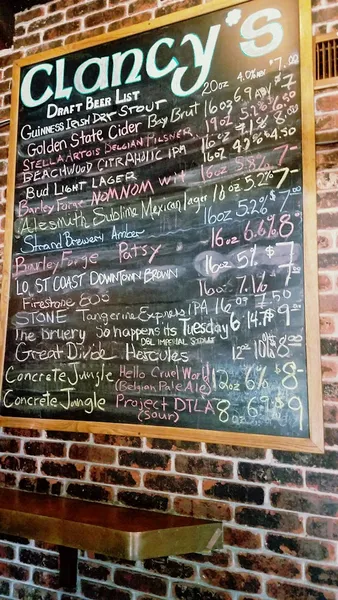 Clancy's
DRAFT BEER LIST
GUINNESS IRISH DRY STOUT 20oz 4.0% ABV $7.00
Golden State Cider Bay Brut 16oz 6.9 ABV $7
STELLA ARTOIS BELGIAN PILSNER 19oz 5.2%
BEACHWOOD CITRAHOLIC IPA 16oz 7.1% $8
Bud LIGHT LAGER 16oz 4.2% $4.50
Barley Forge NOM NOM wit 16oz 5.8% 7-
Alesmith Sublime Mexican lager 16oz 5.2% 7-
Strand Brewery Amber 16oz 5.2% $7.00
Barley Forge Patsy 16oz 6.6% 8
LO. ST COAST DOWNTOWN BROWN 16oz 5% $7
Firestone 16oz 7.1% 7
STONE Tangerine Express IPA 16oz 7.50
The Bruery So happens its Tuesday 6 14.7% $9
DBL IMPERIAL STOUT
Great Divide Hercules 12oz 10% $8
Concrete Jungle Hello Cruel World
(Belgian Pale Ale) 12oz 6% $8-
Concrete Jungle Project DTLA 8oz 6.9% $9
(sour)